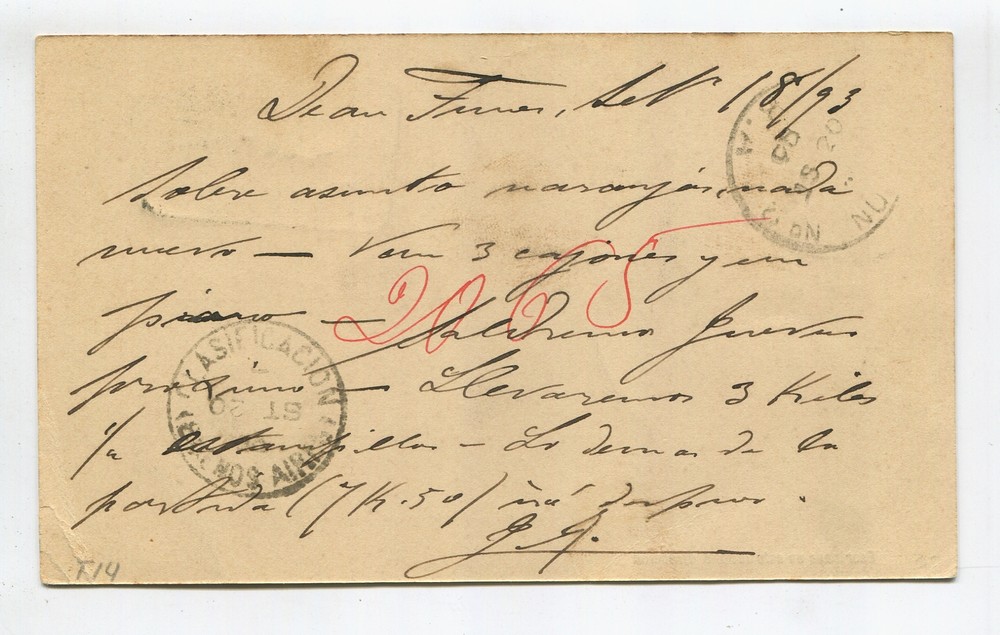 Dean Funes, Set. 18/93
Sobre asunto naranjos, nada
nuevo — Van 3 cajones y un
piano — Saldremos Jueves
proximo — Llevaremos 3 Kilos
estampillas — Lo demas de la
partida (7 K. 50) irá despues.
J. A.
2065
CLASIFICACION
ST 20
BUENOS AIRES
20
T14